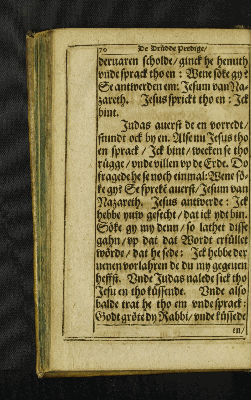 70 De Drüdde Predige/
deruaren scholde/ ginck he henuth
vnde sprack tho en: Wene söke gy?
Se antwerden em: Jesum van Na-
zareth. Jesus sprickt tho en: Jck
bint.
Judas auerst de en vorredt/
stundt ock by en. Alse nu Jesus tho
en sprack/ Jck bint/ weeken se tho
rügge/ vnde villen vp de Erde. Do
fragede he se noch einmal: Wene sö-
ke gy? Se spreke auerst/ Jesum van
Nazareth. Jesus antwerde: Jck
hebbe yuw gesecht/ dat ick ydt bin.
Söke gy my denn/ so lathet disse
gahn/ vp dat dat Wordt erfüllet
wörde/ dat he sede: Jck hebbe der
nenen vorlahren de du my gegeuen
heffst. Vnde Judas nalede sick tho
Jesu en tho küssende. Vnde also
balde trat he tho em vnde sprack:
Godt gröte dy Rabbi/ vnde küssede
en/